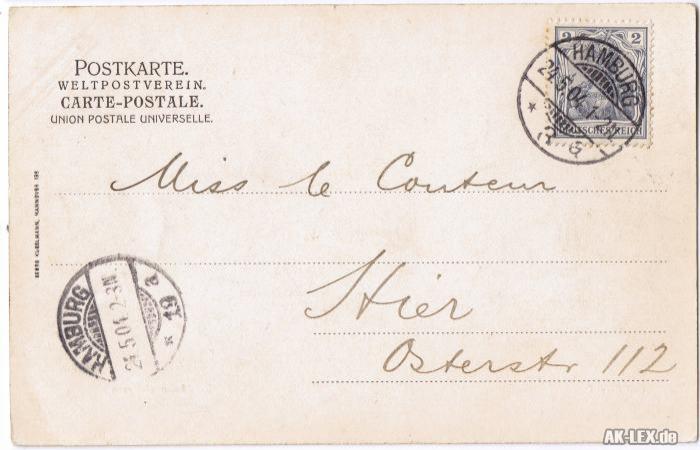 POSTKARTE.
WELTPOSTVEREIN.
CARTE-POSTALE.
UNION POSTALE UNIVERSELLE.
2 2
DEUTSCHES REICH
HAMBURG
24.5.04.
Miss le Couteur
Hier
Osterstr 112
HAMBURG
19 a
AK-LEX.de